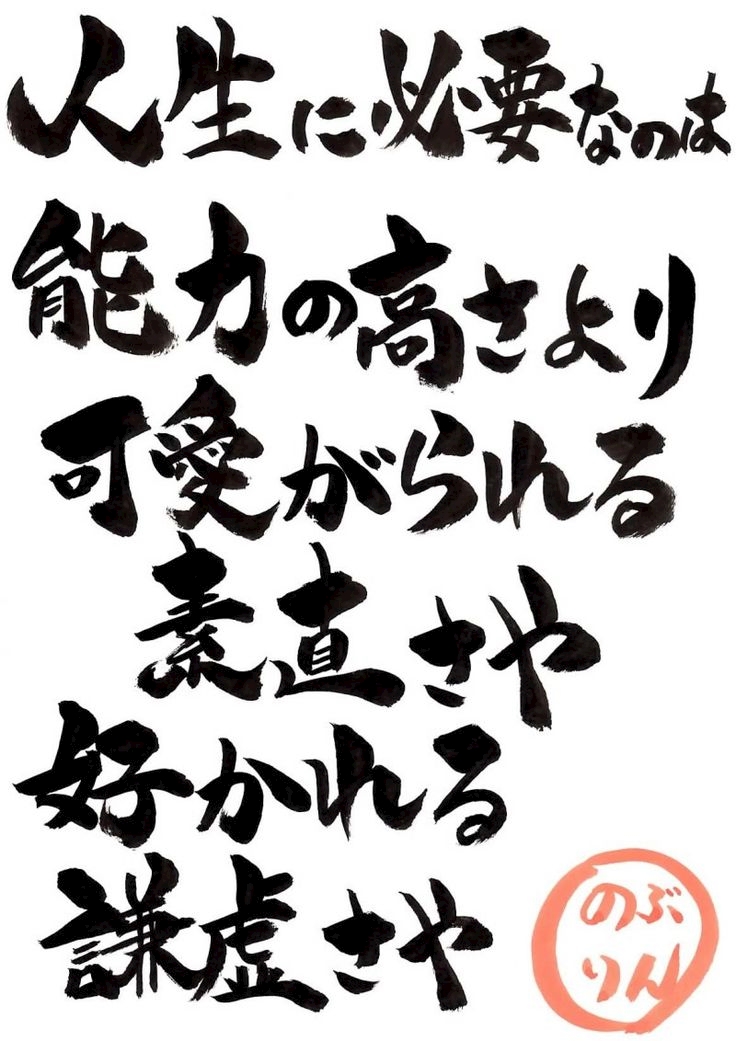 人生に必要なのは
能力の高さより
可愛がられる
素直さや
好かれる
謙虚さや
のぶ
りん